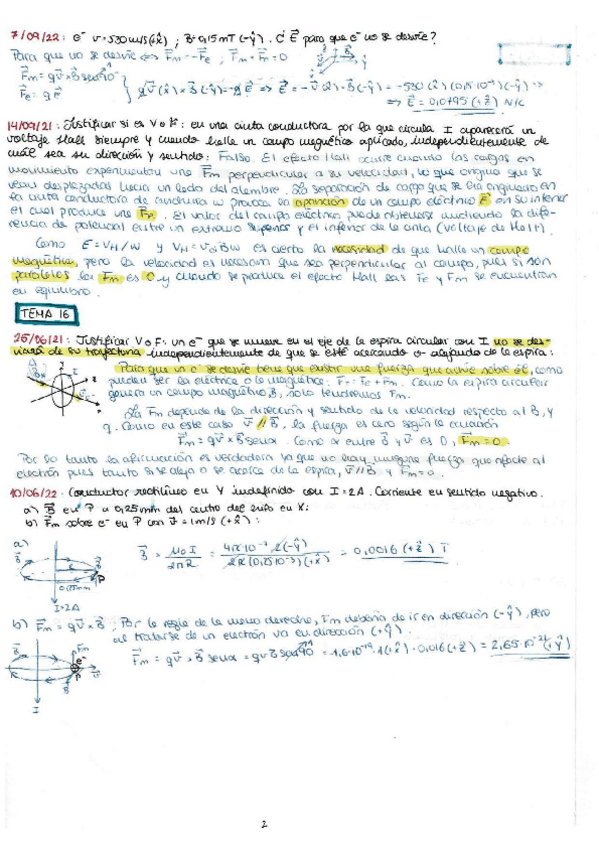 7/09/22: e⁻ v=530 m/s (+x̂); B=0,15mT (-ŷ). ¿ E⃗ para que e⁻ no se desvíe?
Para que no se desvíe ⇔ F⃗m = -F⃗e ; F⃗m + F⃗e = 0
F⃗m = q v⃗ × B⃗ senα 90°
F⃗e = q E⃗
q v⃗(x̂) × B⃗(-ŷ) = -q E⃗ ⇒ E⃗ = -v⃗(x̂) × B⃗(-ŷ) = -530 (x̂) (0,15·10⁻³) (-ŷ) ⇒
⇒ E⃗ = 0,0795 (+ẑ) N/C
14/09/21: Justificar si es V o F: en una cinta conductora por la que circula I aparecerá un
voltaje Hall siempre y cuando halle un campo magnético aplicado, independientemente de
cuál sea su dirección y sentido: Falso. El efecto Hall ocurre cuando las cargas en
movimiento experimentan una F⃗m perpendicular a su velocidad, lo que origina que se
vean desplazadas hacia un lado del alambre. La separación de carga que se ha originado en
la cinta conductora de anchura w provoca la aparición de un campo eléctrico E⃗ en su interior
el cual produce una F⃗e. El valor del campo eléctrico puede obtenerse midiendo la dife-
rencia de potencial entre un extremo superior y el inferior de la cinta (voltaje de Hall).
Como E = VH/w y VH = vdBw es cierto la necesidad de que halle un campo
magnético, pero la velocidad es necesario que sea perpendicular al campo, pues si son
paralelos la F⃗m es 0 y cuando se produce el efecto Hall las F⃗e y F⃗m se encuentran
en equilibrio.
TEMA 16
25/06/21: Justificar V o F: un e⁻ que se mueve en el eje de la espira circular con I no se des-
viará de su trayectoria independientemente de que se esté acercando o alejando de la espira:
Para que un e⁻ se desvíe tiene que existir una fuerza que actúe sobre él, como
pueden ser la eléctrica o la magnética: F = Fe + Fm. Como la espira circular
genera un campo magnético B, solo tendremos Fm.
La Fm depende de la dirección y sentido de la velocidad respecto al B, y
q. Como en este caso v⃗ // B⃗, la fuerza es cero según la ecuación
F⃗m = q v⃗ × B⃗ senα. Como α entre B⃗ y v⃗ es 0, F⃗m = 0.
Por lo tanto la afirmación es verdadera ya que no hay ninguna fuerza que afecte al
electrón pues tanto si se aleja o se acerca de la espira, v⃗ // B⃗ y F⃗m = 0.
10/06/22. Conductor rectilíneo en Y indefinido con I=2A. Corriente en sentido negativo.
a) B⃗ en P a 0,25mm del centro del hilo en X:
b) F⃗m sobre e⁻ en P con v⃗ = 1m/s (+x̂):
a)
B⃗ = μ0 I / 2πR = 4π·10⁻⁷ · 2(-ŷ) / 2π (0,25·10⁻³)(+x̂) = 0,0016 (+ẑ) T
P
0,25mm
I=2A
b) F⃗m = q v⃗ × B⃗. Por la regla de la mano derecha, Fm debería de ir en dirección (-ŷ), pero
al tratarse de un electrón va en dirección (+ŷ)
F⃗m = q v⃗ × B⃗ senα = q v × B sen 90° = -1,6·10⁻¹⁹ · 1(+x̂) · 0,016 (+ẑ) = 2,65·10⁻²¹ (+ŷ)
I
2